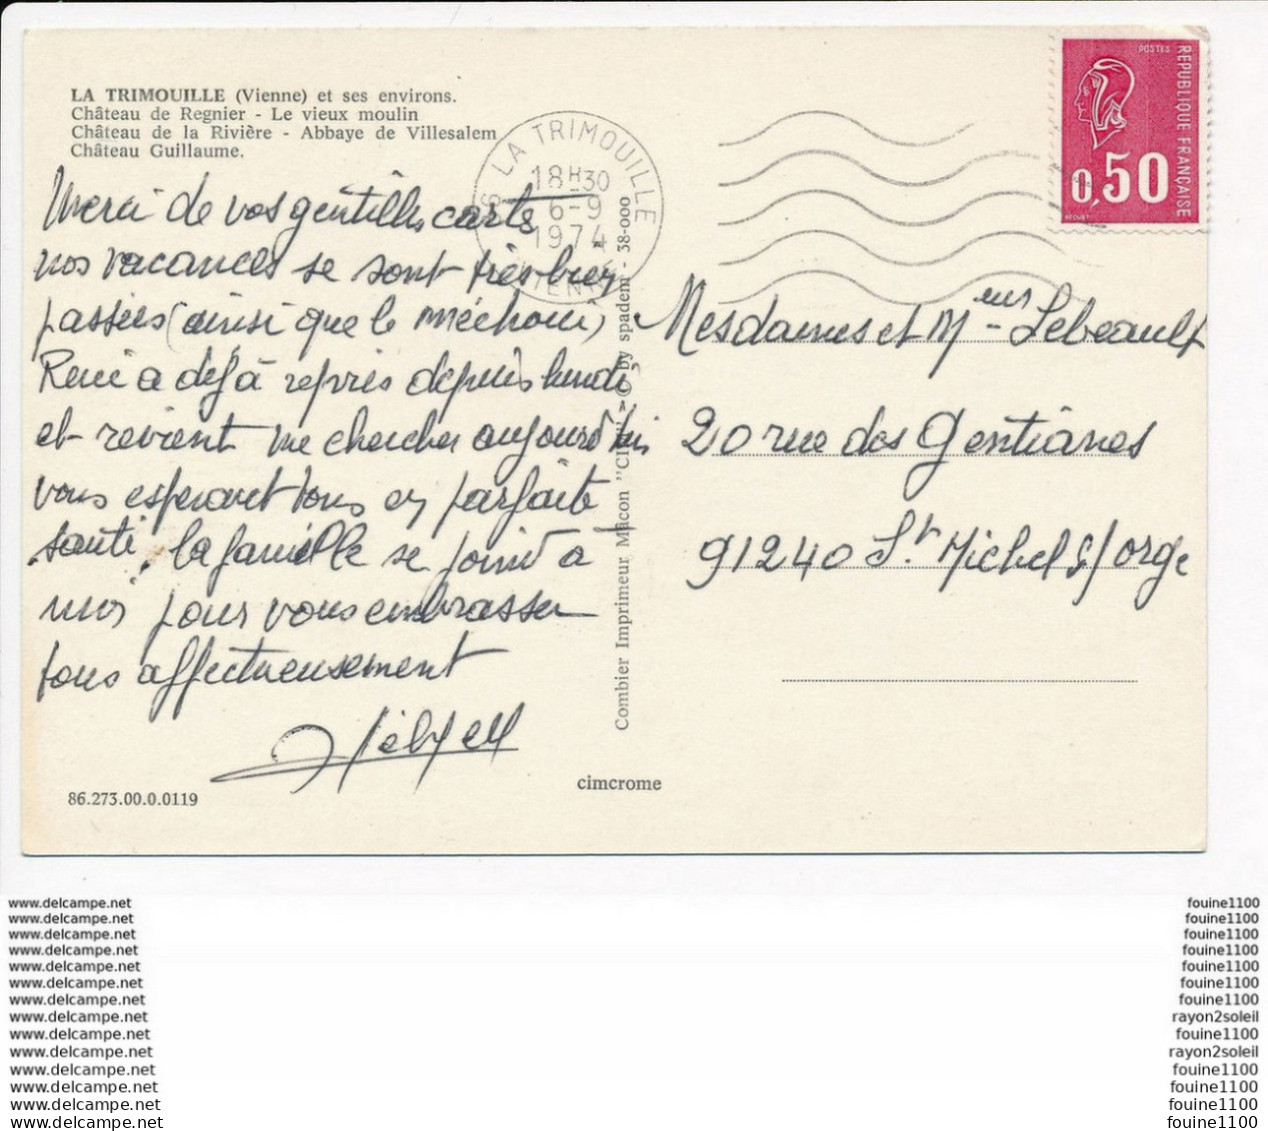 LA TRIMOUILLE (Vienne) et ses environs.
Château de Regnier - Le vieux moulin
Château de la Rivière - Abbaye de Villesalem
Château Guillaume.
86 LA TRIMOUILLE
18H30
6-9
1974
VIENNE
POSTES
REPUBLIQUE FRANÇAISE
0,50
BEQUET
Merci de vos gentilles cartes
nos vacances se sont très bien
passées (ainsi que le méchoui)
René a déjà repris depuis lundi
et revient me chercher aujourd'hui
vous espérant tous en parfaite
santé, la famille se joint à
moi pour vous embrasser
tous affectueusement
Mesdames et Mieurs Lebeault
20 rue des Gentianes
91240 St Michel s/ orge
Combier Imprimeur Mâcon "CIM" - © by spadem - 38-000
cimcrome
86.273.00.0.0119
www.delcampe.net
www.delcampe.net
www.delcampe.net
www.delcampe.net
www.delcampe.net
www.delcampe.net
www.delcampe.net
www.delcampe.net
www.delcampe.net
www.delcampe.net
www.delcampe.net
www.delcampe.net
www.delcampe.net
www.delcampe.net
fouine1100
fouine1100
fouine1100
fouine1100
fouine1100
fouine1100
fouine1100
rayon2soleil
fouine1100
rayon2soleil
fouine1100
fouine1100
fouine1100
fouine1100